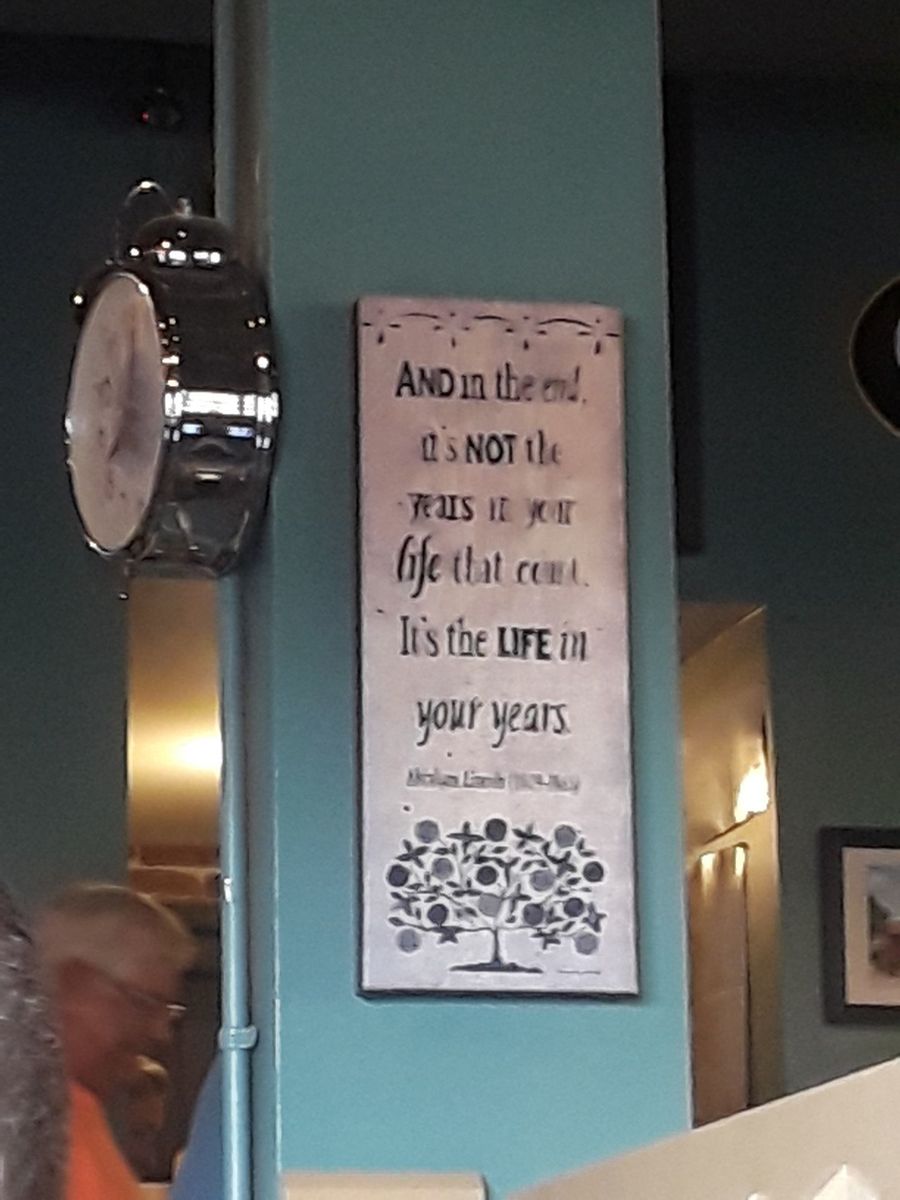 AND in the end,
it's NOT the
years in your
life that count.
It's the LIFE in
your years.
Abraham Lincoln (1809-1865)